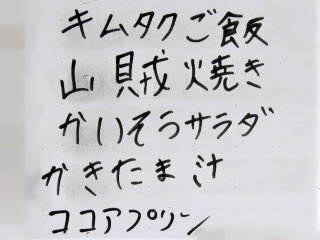 キムタクご飯
山賊焼き
かいそうサラダ
かきたま汁
ココアプリン